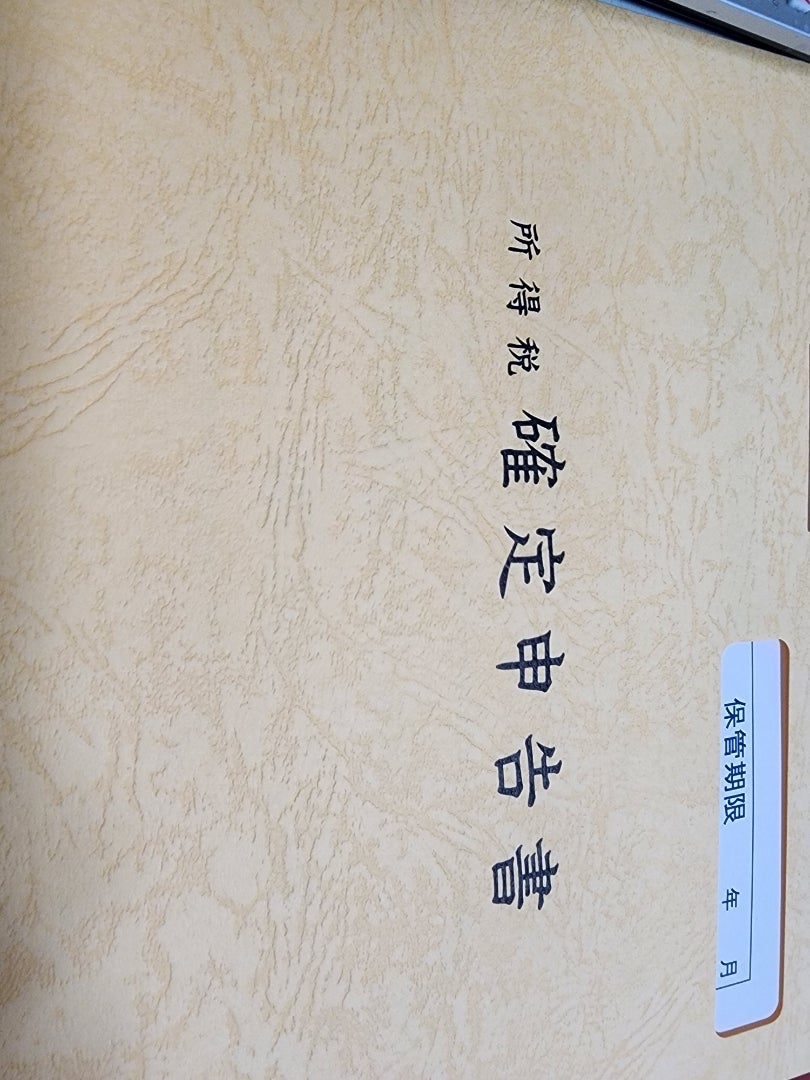 保管期限　　年　　月
所得税確定申告書